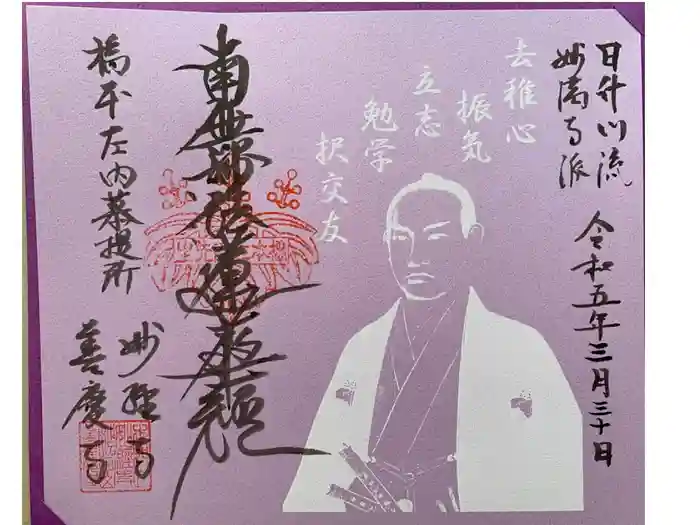 日什門流
妙満寺派
令和五年三月三十日
去稚心
振気
立志
勉学
択交友
南無妙法蓮華経
橋本左内菩提所
妙經寺
善慶寺